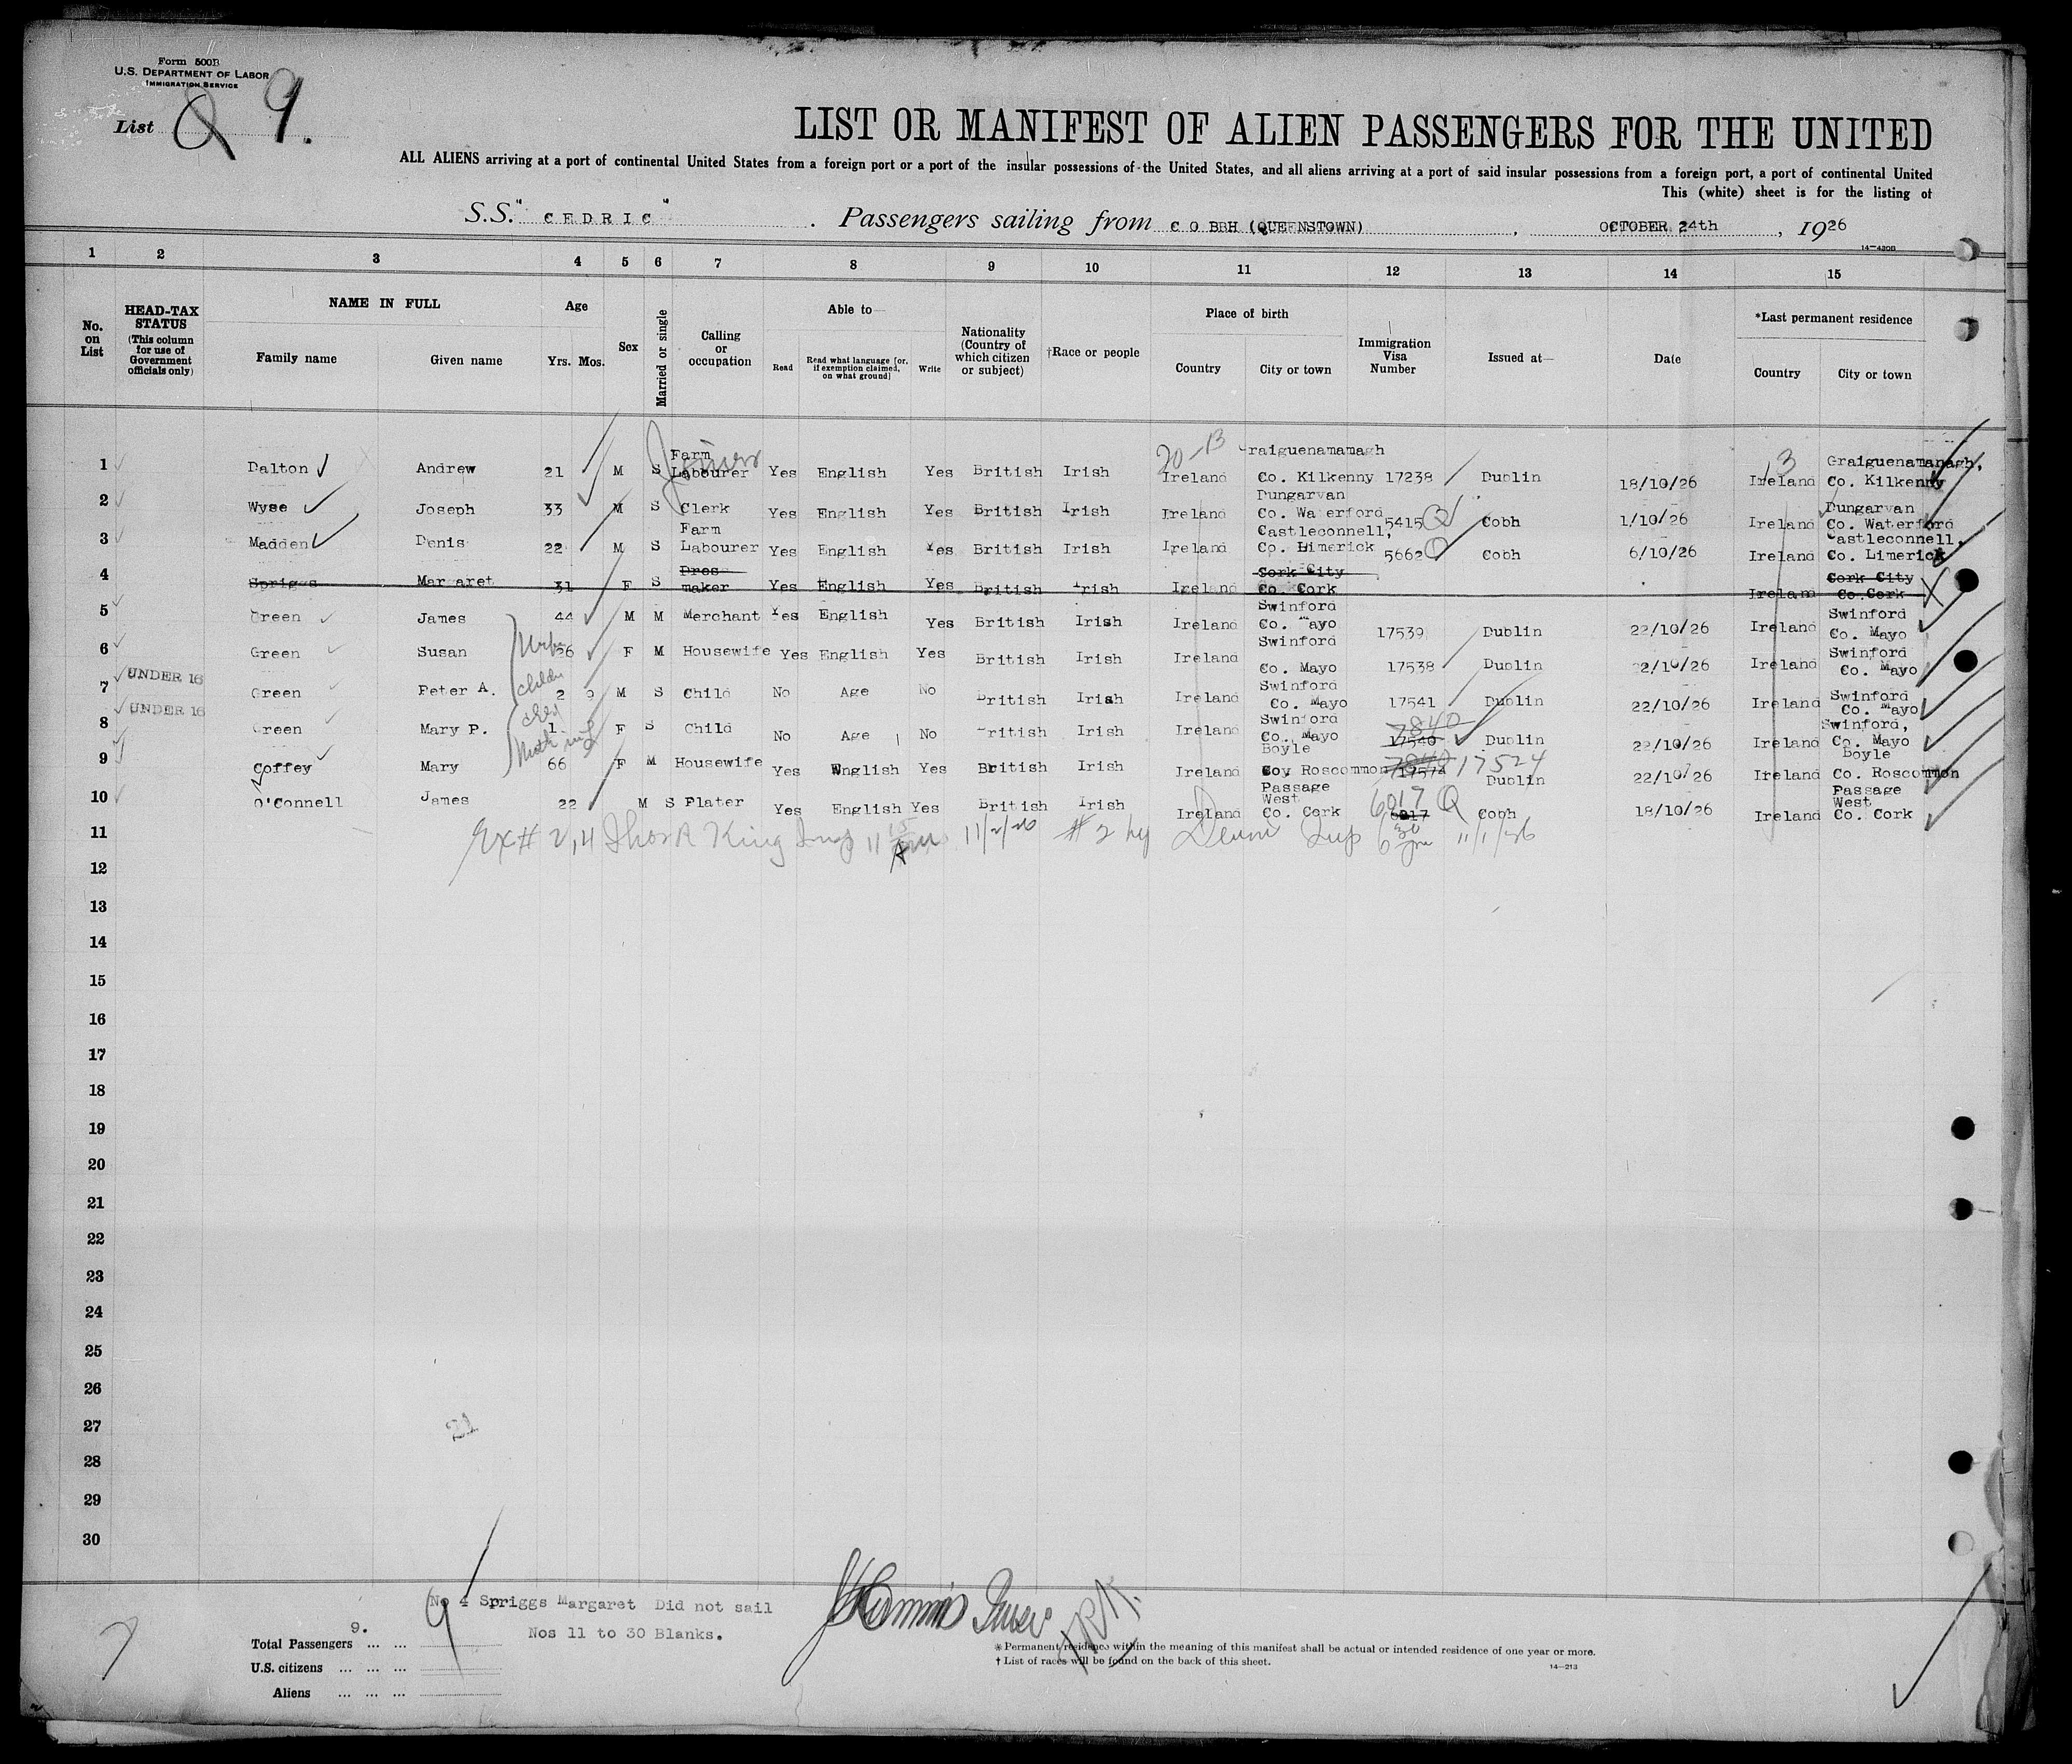 Form 500B
U.S. DEPARTMENT OF LABOR
IMMIGRATION SERVICE
List 9.
LIST OR MANIFEST OF ALIEN PASSENGERS FOR THE UNITED
ALL ALIENS arriving at a port of continental United States from a foreign port or a port of the insular possessions of the United States, and all aliens arriving at a port of said insular possessions from a foreign port, a port of continental United
This (white) sheet is for the listing of
S.S. "CEDRIC" . Passengers sailing from COBBH (QUEENSTOWN) , OCTOBER 24th , 1926
14—430B
1 2 3 4 5 6 7 8 9 10 11 12 13 14 15
No. on List
HEAD-TAX STATUS (This column for use of Government officials only)
NAME IN FULL Family name Given name
Age Yrs. Mos.
Sex
Married or single
Calling or occupation
Able to— Read Read what language [or, if exemption claimed, on what ground] Write
Nationality (Country of which citizen or subject)
†Race or people
Place of birth Country City or town
Immigration Visa Number
Issued at—
Date
*Last permanent residence Country City or town
1 Dalton Andrew 21 M S Farm Labourer Yes English Yes British Irish Ireland Graiguenamamagh Co. Kilkenny 17238 Dublin 18/10/26 Ireland Graiguenamanagh, Co. Kilkenny
20-13 3
2 Wyse Joseph 33 M S Clerk Yes English Yes British Irish Ireland Dungarvan Co. Waterford 5415 Q Cobh 1/10/26 Ireland Dungarvan Co. Waterford
3 Madden Denis 22 M S Farm Labourer Yes English Yes British Irish Ireland Castleconnell, Co. Limerick 5662 Q Cobh 6/10/26 Ireland Castleconnell, Co. Limerick
4 Spriggs Margaret 31 F S Dressmaker Yes English Yes British Irish Ireland Cork City Co. Cork Ireland Cork City Co. Cork X
5 Green James 44 M M Merchant Yes English Yes British Irish Ireland Swinford Co. Mayo 17539 Dublin 22/10/26 Ireland Swinford Co. Mayo
6 Green Susan 36 F M Housewife Yes English Yes British Irish Ireland Swinford Co. Mayo 17538 Dublin 22/10/26 Ireland Swinford Co. Mayo
7 UNDER 16 Green Peter A. 2 9 M S Child No Age No British Irish Ireland Swinford Co. Mayo 17541 Dublin 22/10/26 Ireland Swinford Co. Mayo
8 UNDER 16 Green Mary P. 1 F S Child No Age No British Irish Ireland Swinford Co. Mayo 17540 7840 Dublin 22/10/26 Ireland Swinford, Co. Mayo
9 Coffey Mary 66 F M Housewife Yes English Yes British Irish Ireland Boyle Co. Roscommon 7840 17524 Dublin 22/10/26 Ireland Boyle Co. Roscommon
10 O'Connell James 22 M S Plater Yes English Yes British Irish Ireland Passage West Co. Cork 6017 Q Cobh 18/10/26 Ireland Passage West Co. Cork
11
12
13
14
15
16
17
18
19
20
21
22
23
24
25
26
27
28
29
30
21
No 4 Spriggs Margaret Did not sail
Nos 11 to 30 Blanks.
Total Passengers ... ... 9.
9
U.S. citizens ... ... ...
Aliens ... ... ...
* Permanent residence within the meaning of this manifest shall be actual or intended residence of one year or more.
† List of races will be found on the back of this sheet.
14—213